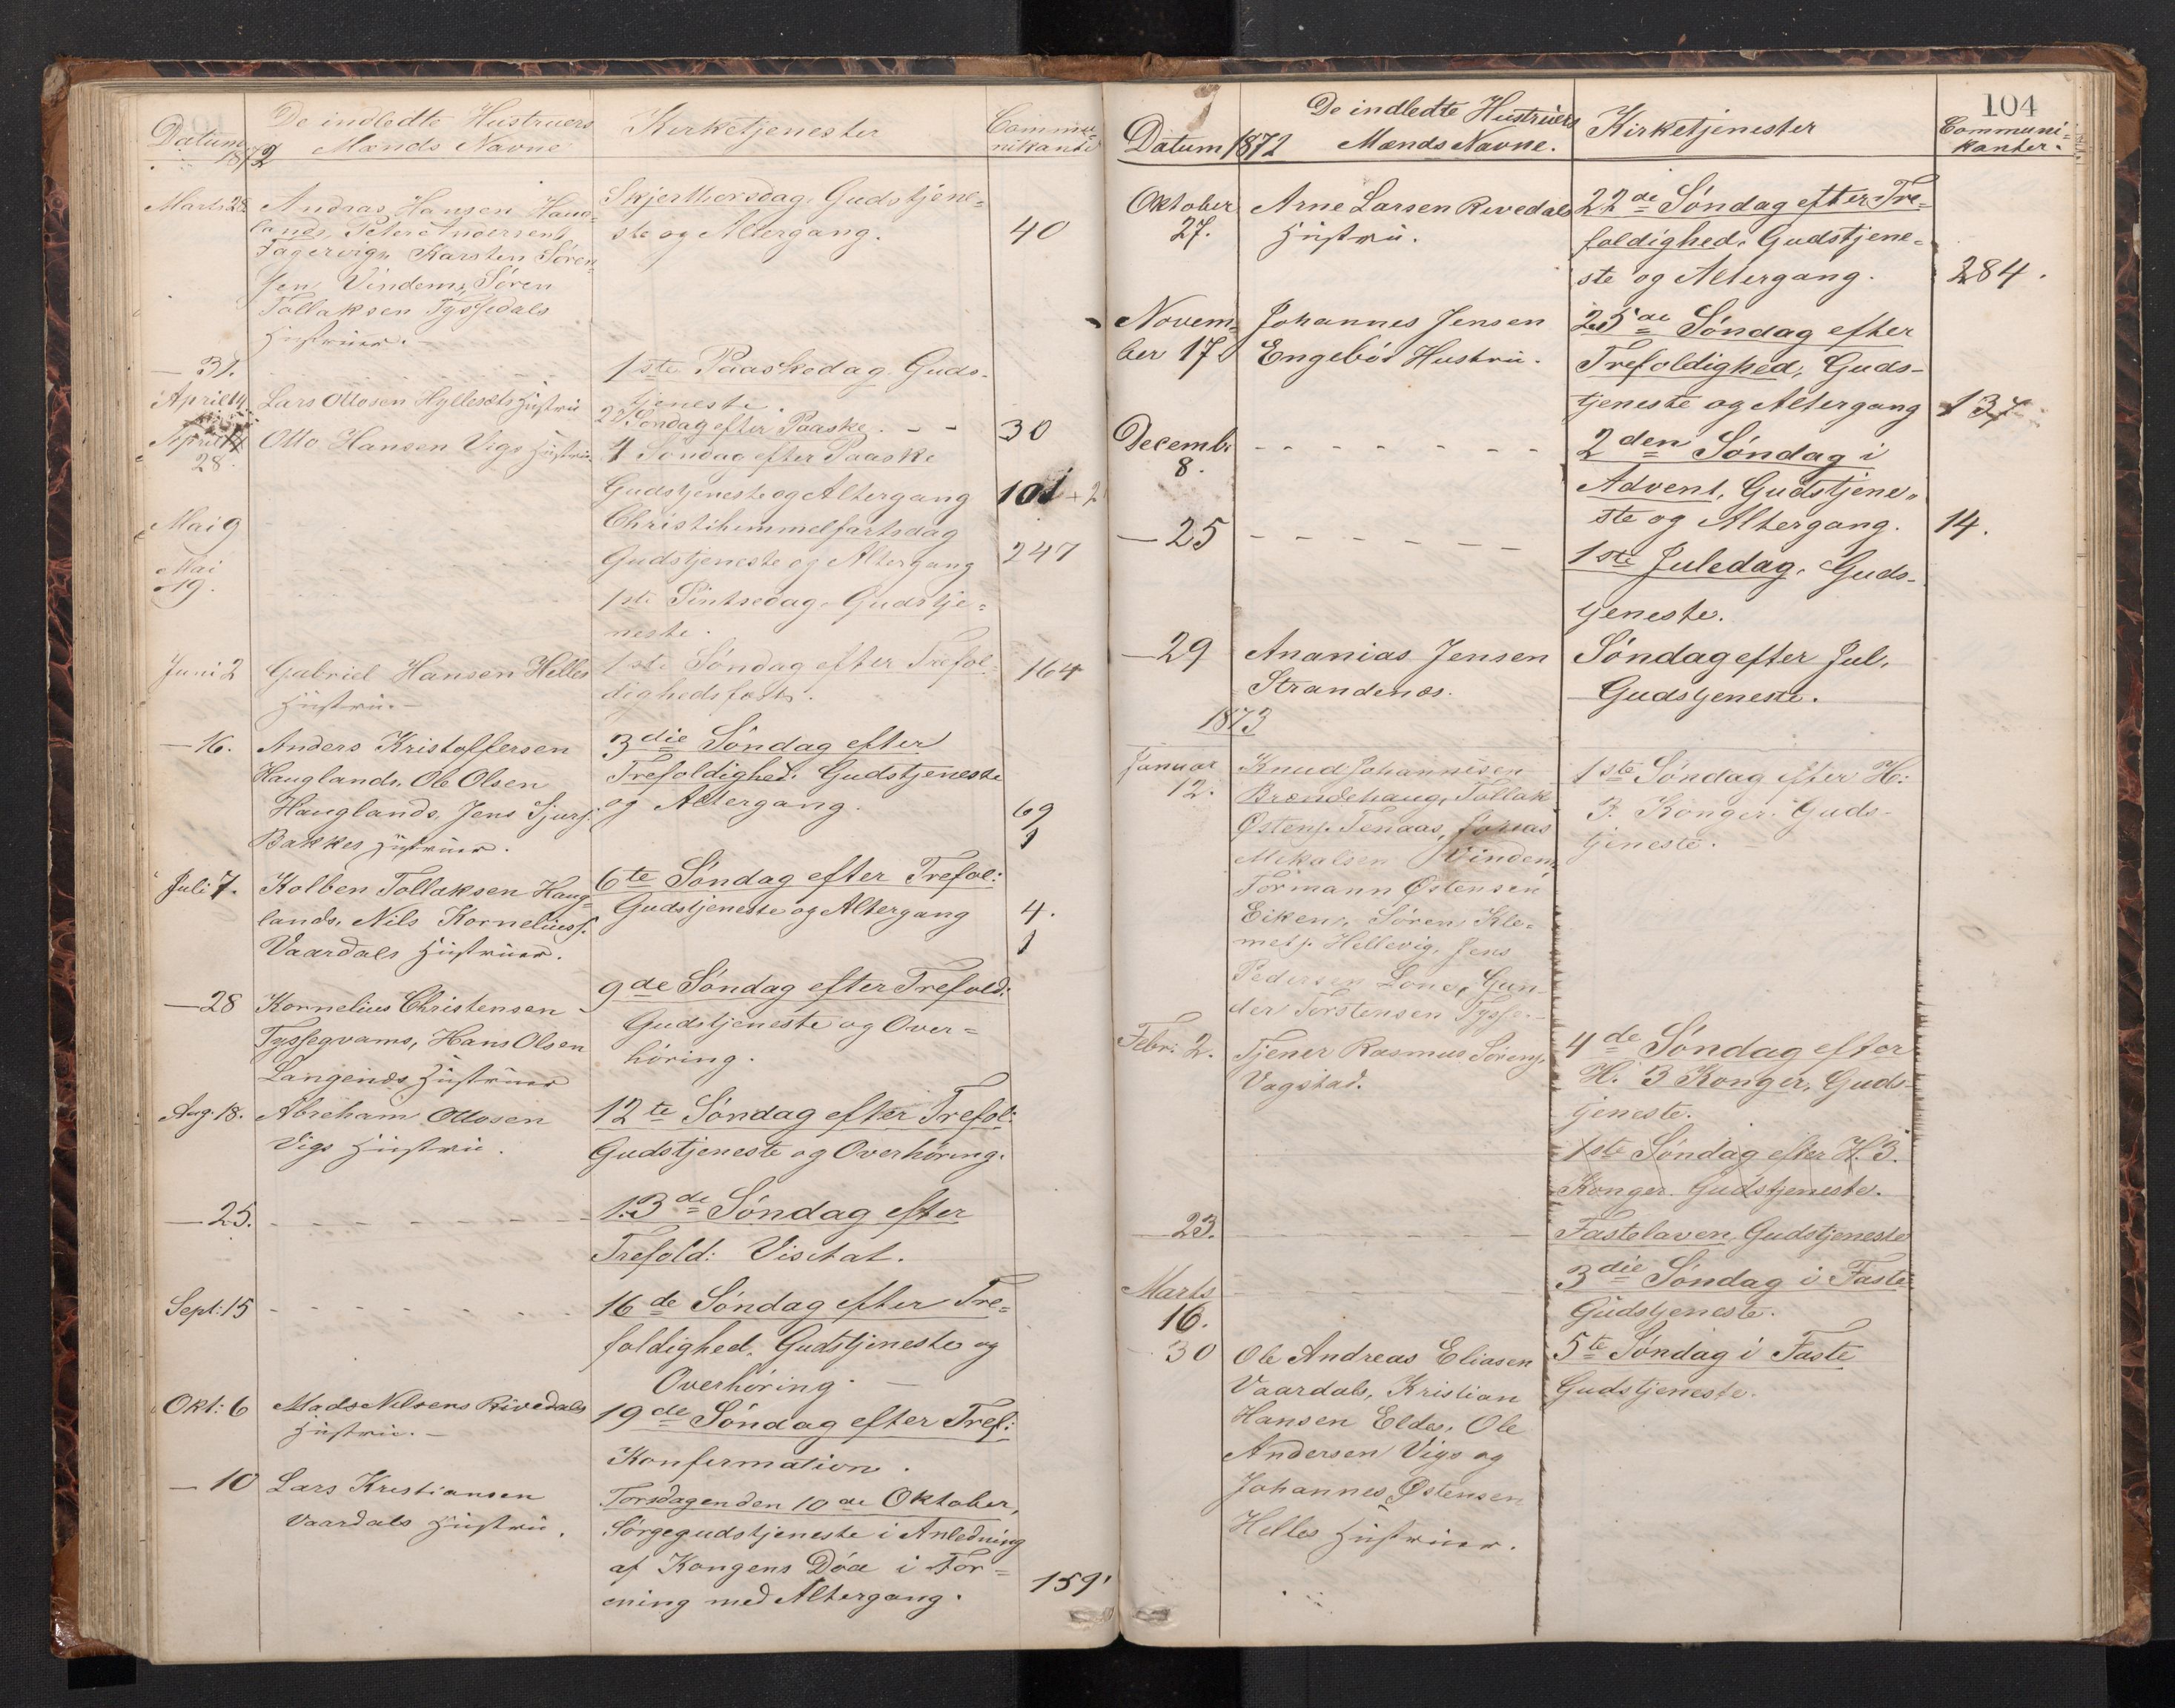 Datum 1872
De indledte Hustruers
Mænds Navne
Kirketjenester
Commu-
nikanter
Marts 28.
Andras Hansen Haug-
lands, Peter Andersens
Fagervigs, Karsten Sören-
sen Vindems, Sören
Tollaksen Tyssedals
Hustruer.
Skjærthorsdag. Gudstjene-
ste og Altergang.
40
— 31.
1ste Paaskedag. Guds-
tjeneste
April 14
Lars Ottosen Hyllesets Hustru
2d Søndag efter Paaske. - -
30
April
28.
Otto Hansen Vigs Hustru.
4 Søndag efter Paaske
Gudstjeneste og Altergang
101 + 2
Mai 9
Christihimmelfartsdag
Gudstjeneste og Altergang
247
Mai
19.
1ste Pintsedag. Gudstje-
neste.
Juni 2
Gabriel Hansen Helles
Hustru. —
1ste Söndag efter Trefol-
dighedsfest.
164
— 16.
Anders Kristoffersen
Hauglands, Ole Olsen
Hauglands, Jens Sjurs.
Bakkes Hustruer.
3die Söndag efter
Trefoldighed. Gudstjeneste
og Altergang.
69
1
Juli 7.
Kolben Tollaksen Haug-
lands, Nils Korneliuss.
Vaardals Hustruer.
6te Söndag efter Trefol:
Gudstjeneste og Altergang
4.
1
— 28
Kornelius Christensen
Tyssegvams, Hans Olsen
Langenæs Hustruer
9de Söndag efter Trefold:
Gudstjeneste og Over-
höring.
Aug. 18.
Abraham Ottosen
Vigs Hustru.
12te Söndag efter Trefol:
Gudstjeneste og Overhöring.
— 25. - - - - - - -
13de Söndag efter
Trefold: Visitat.
Sept: 15 - - - - - - -
16de Söndag efter Tre-
foldighed. Gudstjeneste og
Overhöring. —
Okt: 6
Mads Nilsens Rivedals
Hustru. —
19de Söndag efter Tref:
Konfirmation.
— 10
Lars Kristiansen
Vaardals Hustru.
Torsdagen den 10de Oktober,
Sörgegudstjeneste i Anledning
af Kongens Död i For-
ening med Altergang.
159
104
Datum 1872
De indledte Hustruers
Mænds Navne.
Kirketjenester
Communi-
kanter.
Oktober
27.
Arne Larsen Rivedals
Hustru.
22de Söndag efter Tre-
foldighed. Gudstjene-
ste og Altergang.
284.
Novem-
ber 17
Johannes Jensen
Engebö Hustru.
25de Söndag efter
Trefoldighed, Guds-
tjeneste og Altergang
137
Decemb.
8.
- - - - - - -
2den Söndag i
Advent, Gudstjene-
ste og Altergang.
14.
— 25 - - - - - -
1ste Juledag. Guds-
tjeneste.
— 29
Ananias Jensen
Strandenæs.
Söndag efter Jul,
Gudstjeneste.
1873
Januar
12.
Knud Johannesen
Brændehaug, Tollak
Østens. Tenaas,
Mikalsen Vindem,
Tormann Østensen
Eiken, Sören Kle-
mets. Hellevig, Jens
Pedersen Lone, Gun-
der Torstensen
1ste Söndag efter H:
3. Konger. Guds-
tjeneste.
Febr. 2.
Tjener Rasmus Sörens.
Vagstad.
4de Söndag efter
H. 3 Konger, Guds-
tjeneste.
1ste Söndag efter H. 3.
Konger. Gudstjeneste.
— 23. - - - - - -
Fastelaven, Gudstjeneste
Marts
16.
3die Söndag i Faste
Gudstjeneste.
30
Ole Andreas Eliasen
Vaardals, Kristian
Hansen Eldes, Ole
Andersen Vigs og
Johannes Østensen
Helles Hustruer.
5te Söndag i Faste
Gudstjeneste.